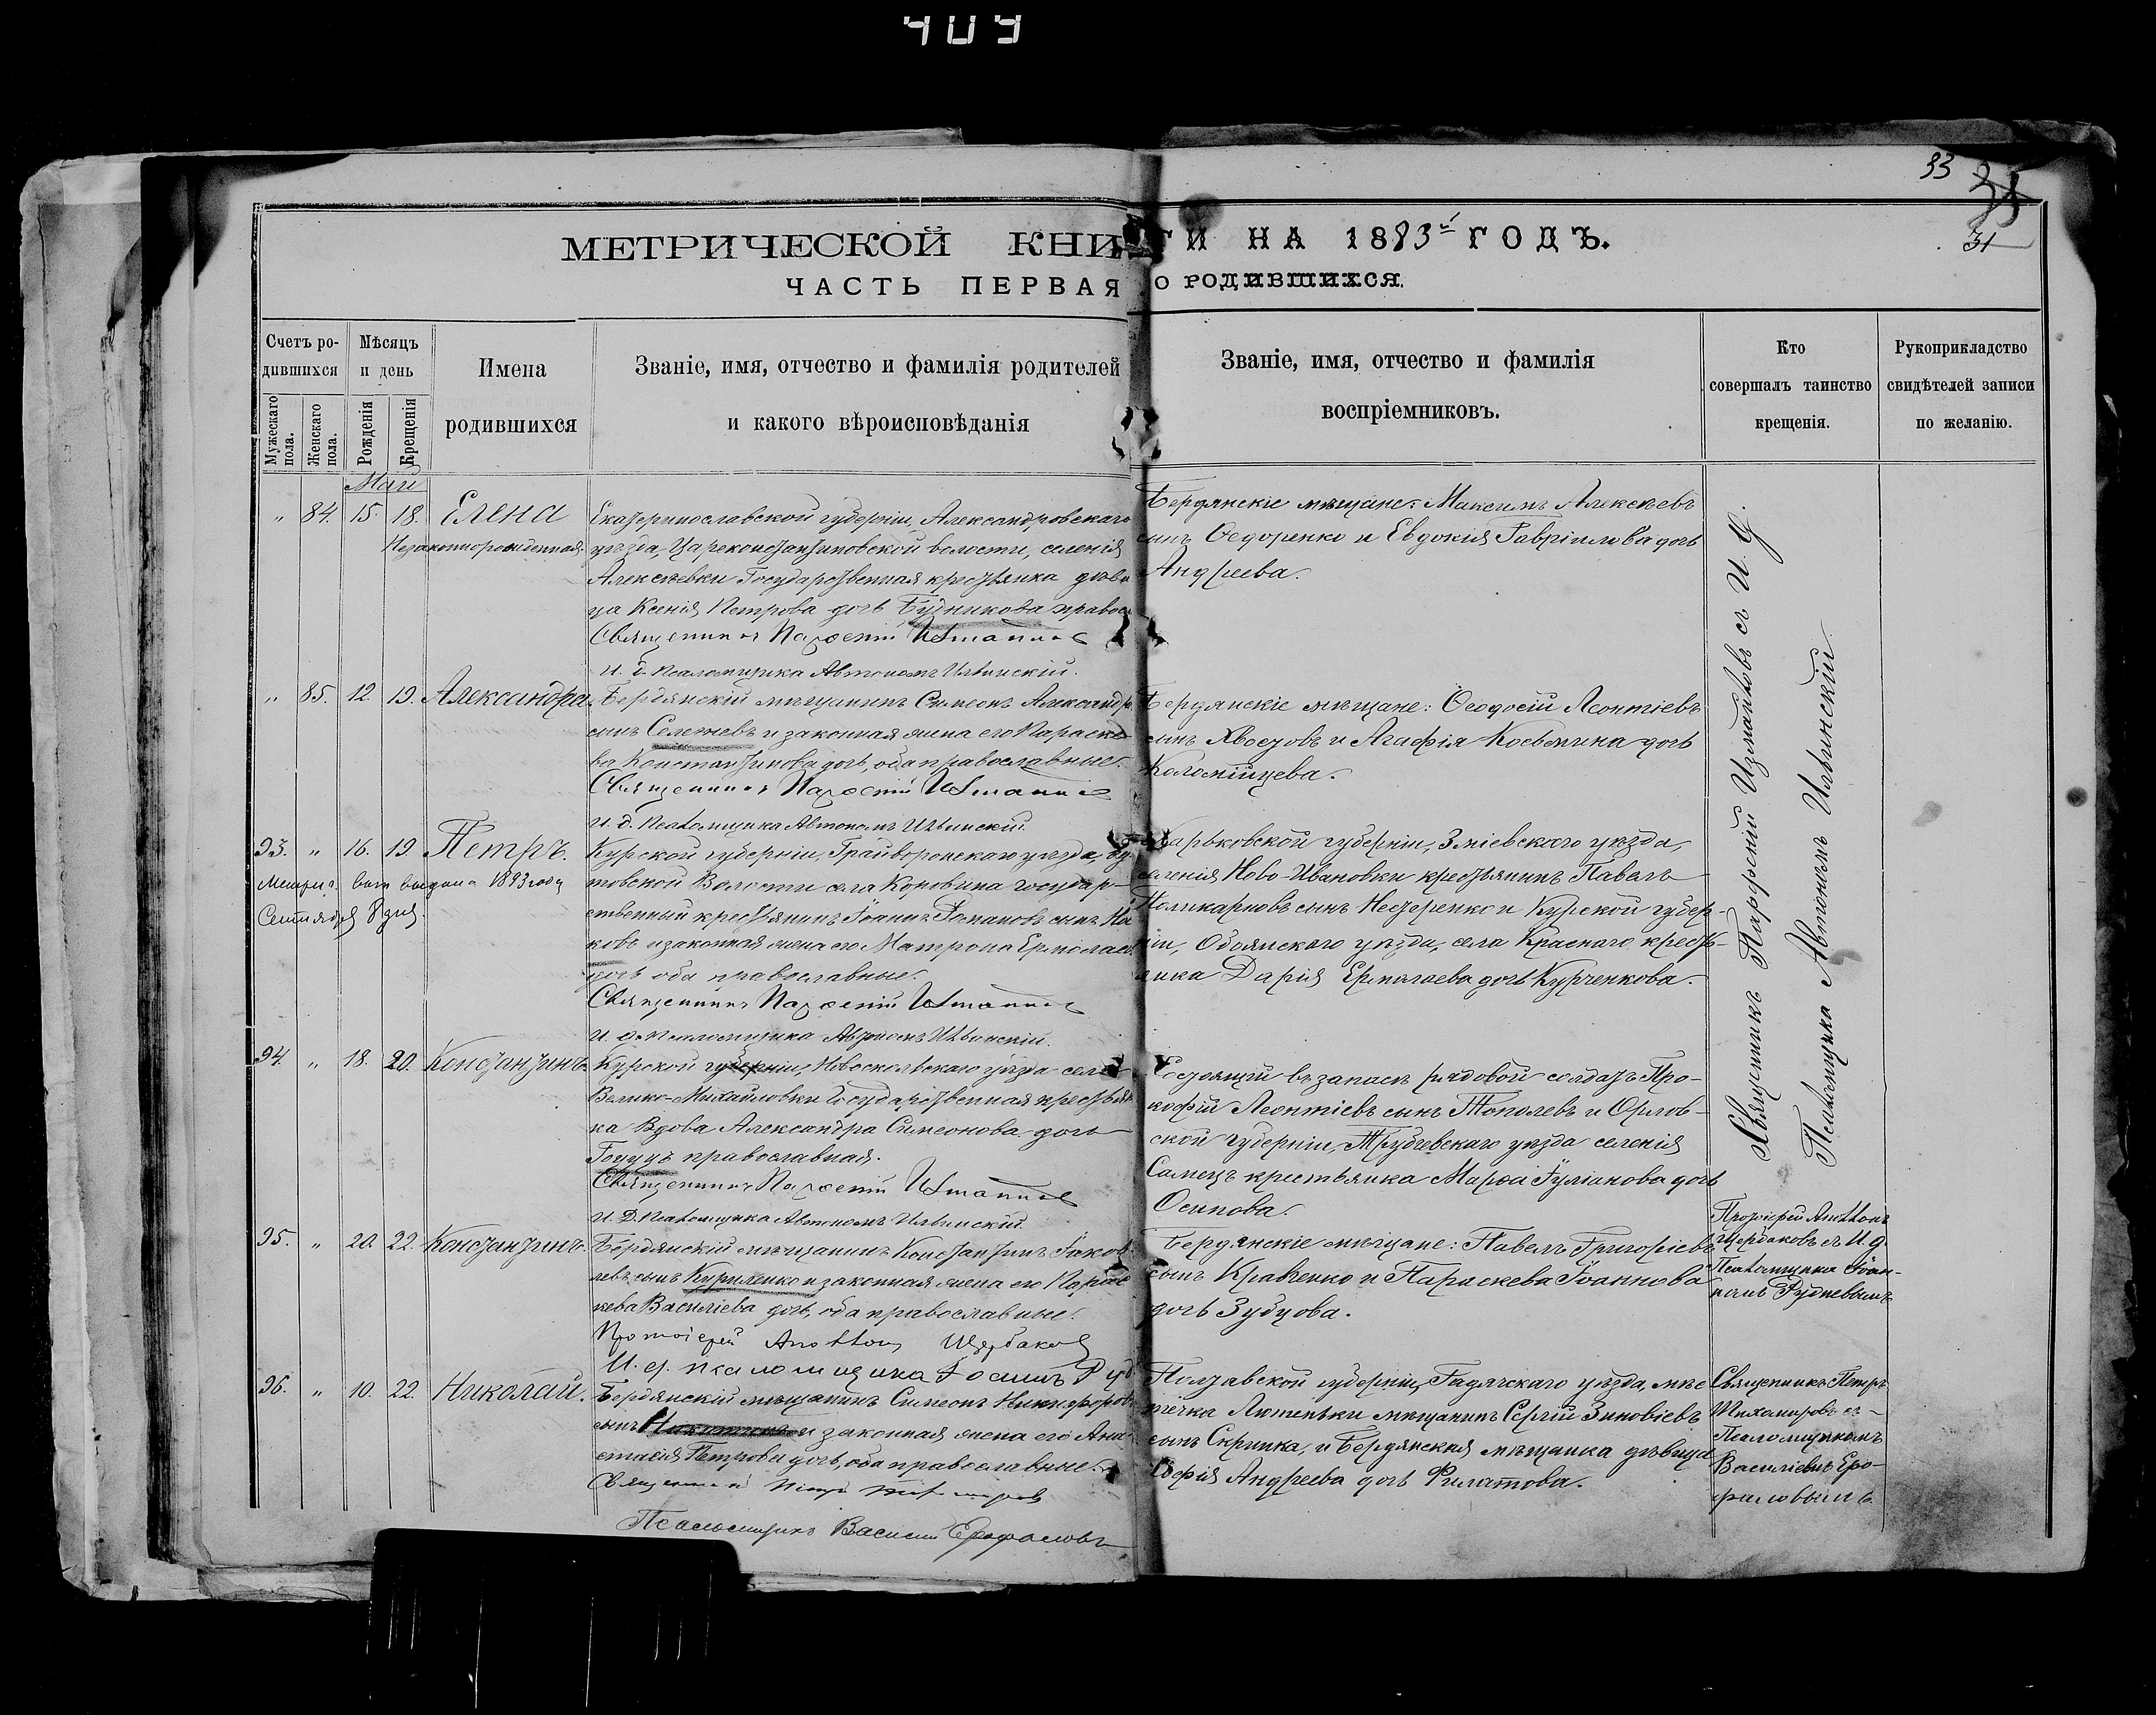 409
33
35
31
МЕТРИЧЕСКОЙ КНИГИ НА 1883й ГОДЪ.
ЧАСТЬ ПЕРВАЯ О РОДИВШИХСЯ.
Счетъ ро-
дившихся
Мужескаго пола.
Женскаго пола.
Мѣсяцъ
и день
Рожденія
Крещенія
Имена
родившихся
Званіе, имя, отчество и фамилія родителей
и какого вѣроисповѣданія
Званіе, имя, отчество и фамилія
воспріемниковъ.
Кто
совершалъ таинство
крещенія.
Рукоприкладство
свидѣтелей записи
по желанію.
Май
" 84. 15. 18. Елена
Незаконнорожденная.
Екатеринославской губерніи, Александровскаго
уѣзда, Цареконстантиновской волости, селенія
Алексѣевки Государственная крестьянка дѣви
ца Ксенія Петрова дочь Будникова правосл
Священникъ Парѳеній
И. д. Псаломщика Автономъ Ильинскій.
Бердянскіе мѣщане: Максимъ Алексѣевъ
сынъ Ѳедоренко и Евдокія Гавріилова дочь
Андреева.
" 85. 12. 19. Александра.
Бердянскій мѣщанинъ Симеонъ Александр
сынъ Селезневъ и законная жена его Параске
ва Константинова дочь, оба православные.
Священникъ Парѳеній
И. д. Псаломщика Автономъ Ильинскій.
Бердянскіе мѣщане: Ѳеодосій Леонтіевъ
сынъ Хвостовъ и Агафія Косьмина дочь
Коломійцева.
93. " 16. 19. Петръ.
Метрич. вып. выдана 1893 году
Сентября 8 дня.
Курской губерніи, Грайворонскаго уѣзда,
товской Волости села Коровина государ-
ственный крестьянинъ Іоаннъ Романовъ сынъ
ковъ и законная жена его Матрона Ермолаев
дочь оба православные.
Священникъ Парѳеній
И. д. Псаломщика Автономъ Ильинскій.
Харьковской губерніи, Зміевскаго уѣзда,
селенія Ново-Ивановки крестьянинъ Павелъ
Поликарповъ сынъ Нестеренко и Курской губер-
ніи, Обоянскаго уѣзда, села Краснаго крестьь-
янка Дарія Ермолаева дочь Курченкова.
94. " 18. 20. Константинъ.
Курской губерніи, Новооскольскаго уѣзда села
Велико-Михайловки Государственная крестьян
ка Вдова Александра Симеонова дочь
православная.
Священникъ Парѳеній
И. Д. Псаломщика Автономъ Ильинскій.
Состоящій въ запасѣ рядовой солдатъ Про-
кофій Леонтіевъ сынъ Тополевъ и Орлов-
ской губерніи, Трубчевскаго уѣзда селенія
Самецъ крестьянка Марѳа Іуліанова дочь
Осипова.
Священникъ Парфеній Измайловъ съ И. д.
Псаломщика Автономъ Ильинскій
95. " 20. 22. Константинъ.
Бердянскій мѣщанинъ Константинъ Іаков
левъ сынъ Куриленко и законная жена его Парас
кева Василіева дочь, оба православные.
Протоіерей Антоній Щербаковъ
И. д. псаломщика Іоаннъ Руд
Бердянскіе мѣщане: Павелъ Григоріевъ
сынъ Кравченко и Параскева Іоаннова
дочь Зубцова.
Протоіерей Антоній
Щербаковъ съ И. д.
Псаломщика Іоан-
номъ Рудневымъ
96. " 10. 22. Николай.
Бердянскій мѣщанинъ Симеонъ Никифоров
сынъ и законная жена его Ана
стасія Петрова дочь, оба православные.
Священникъ Петръ Тихомировъ
Псаломщикъ Василій Ерофаловъ
Полтавской губерніи Гадячскаго уѣзда, мѣс
течка Лютеньки мѣщанинъ Сергій Зиновіевъ
сынъ Скрипка, и Бердянская мѣщанка дѣвица
Софія Андреева дочь Филатова.
Священникъ Петръ
Тихомировъ съ
Псаломщикомъ
Василіемъ Еро-
фаловымъ